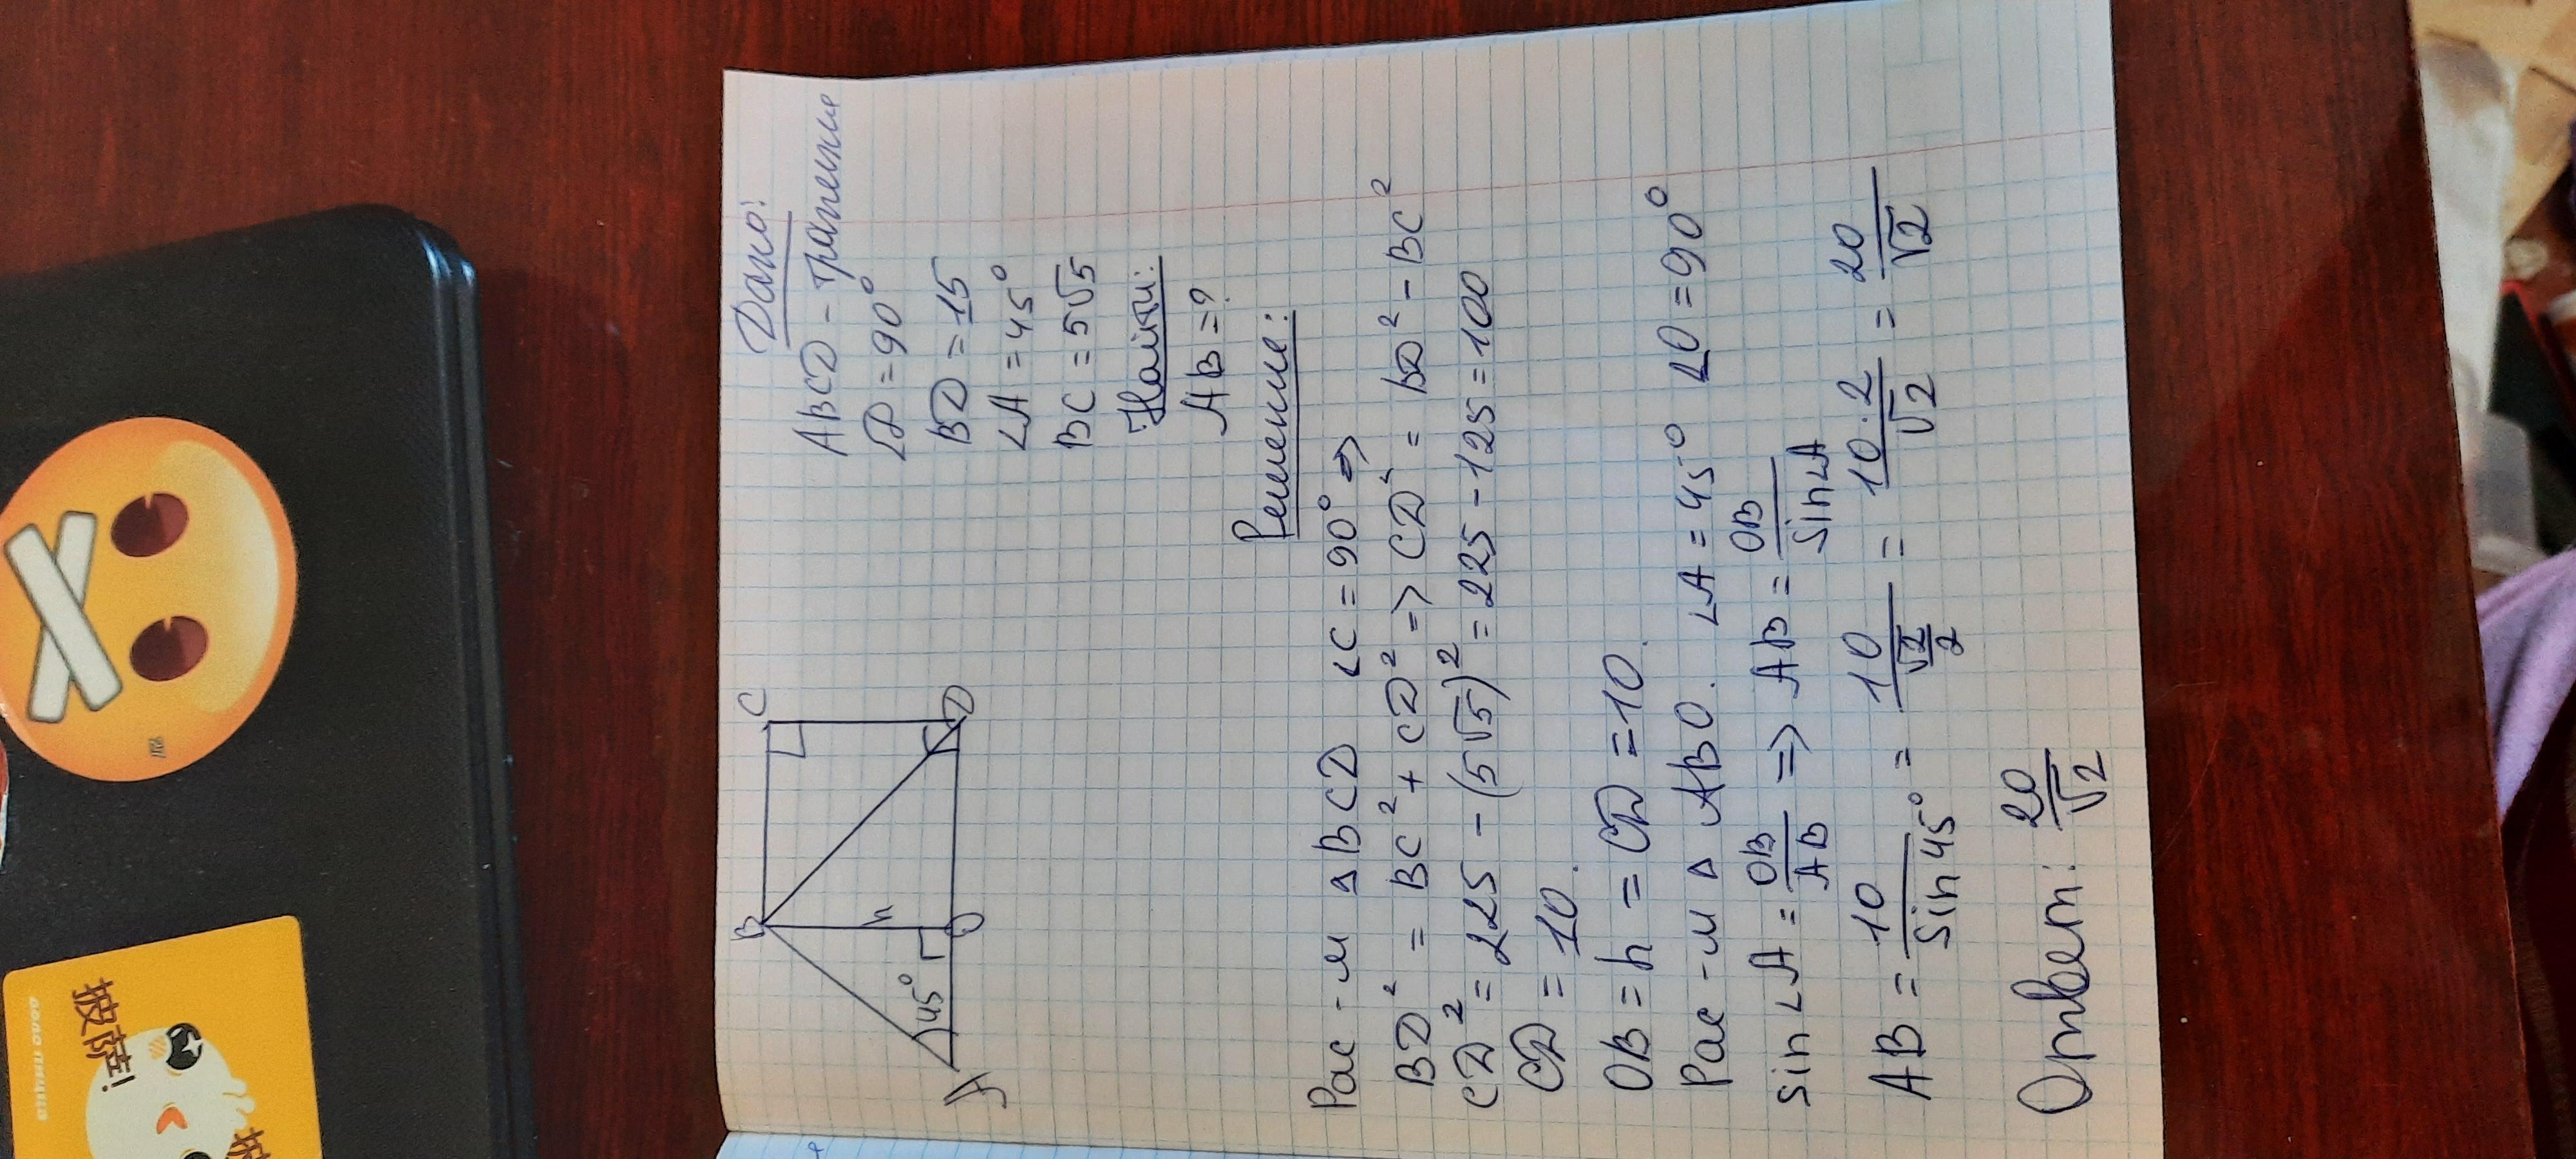 Дано:
ABCD - трапеция
∠D = 90°
BD = 15
∠A = 45°
BC = 5√5
Найти:
AB = ?
B
C
h
45°
A
O
D
Решение:
Рас-м △ BCD ∠C = 90° =>
BD² = BC² + CD² => CD² = BD² - BC²
CD² = 225 - (5√5)² = 225 - 125 = 100
CD = 10.
OB = h = CD = 10.
Рас-м △ ABO. ∠A = 45° ∠O = 90°
sin∠A = OB/AB => AB = OB/sin∠A
AB = 10/sin45° = 10/(√2/2) = 10·2/√2 = 20/√2
Ответ: 20/√2
披萨!